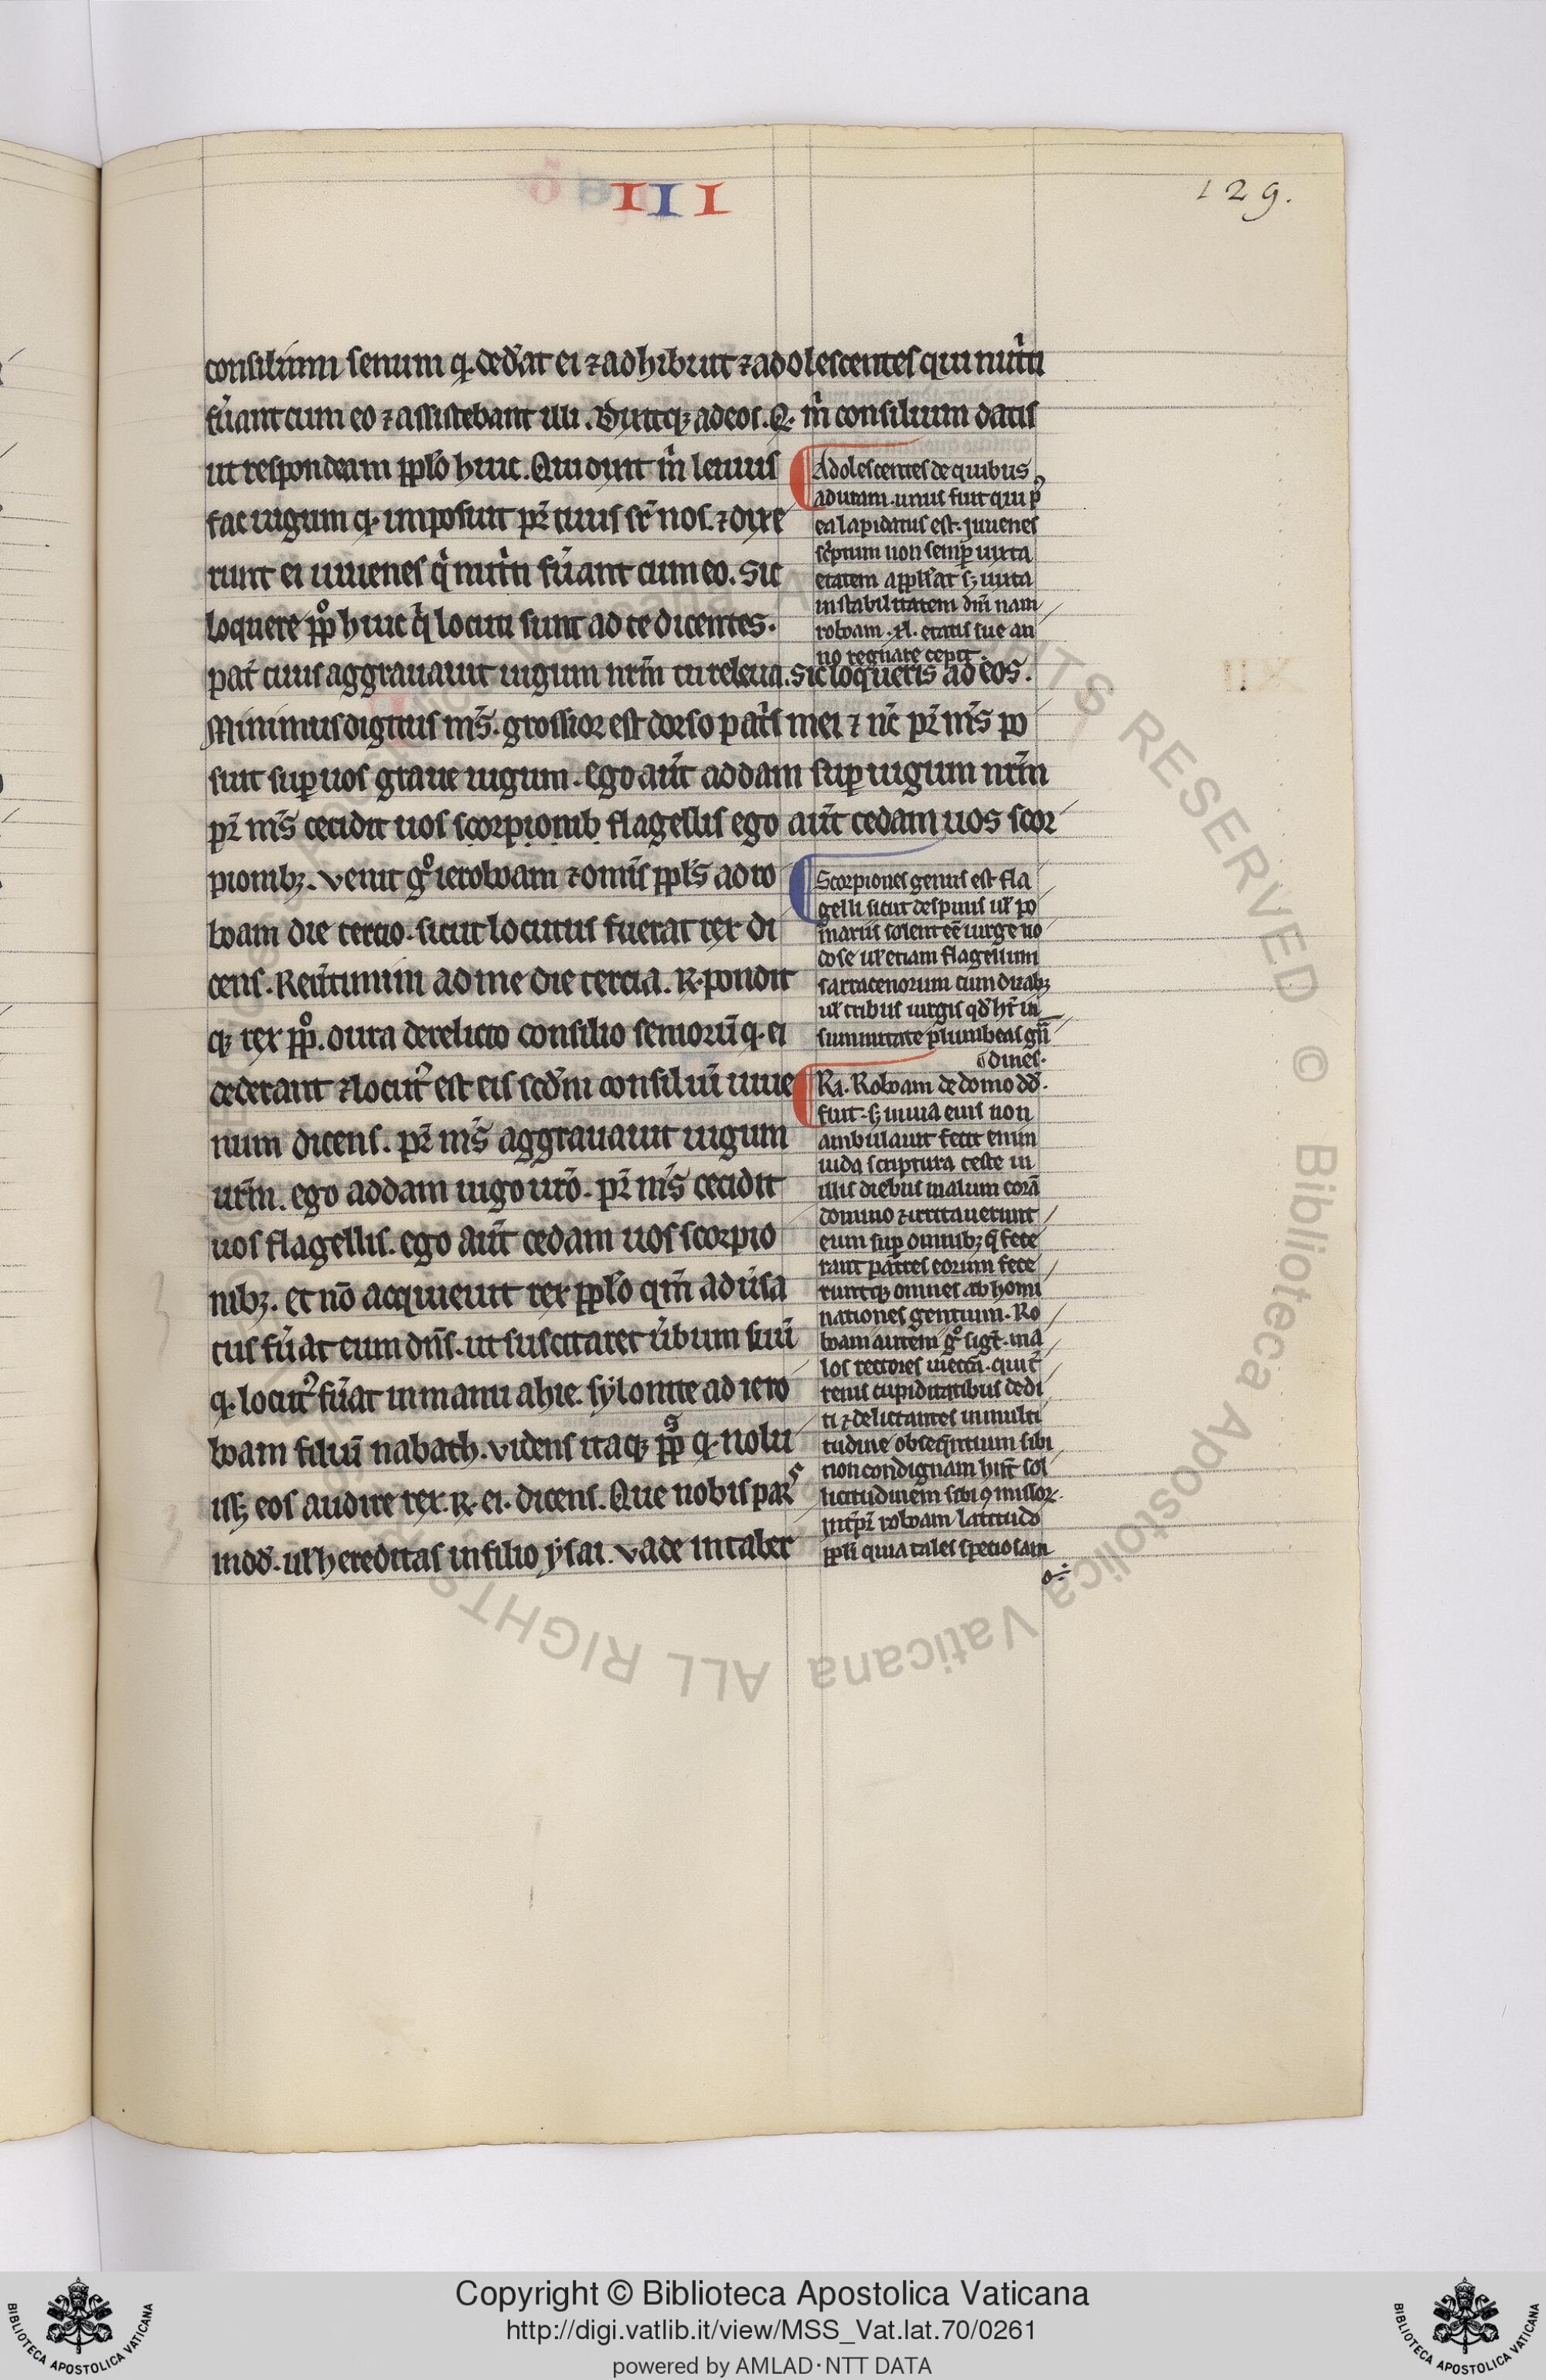 III
129.
consilium senum q. ded'at ei ⁊ adhibuit ⁊ adolescentes qui nut'ti
fu'ant cum eo ⁊ assistebant illi. Dixitq; ad eos. Q. m̓ consilium datis
ut respondeam pplo huic. Qui dix̅t m̓ leuius
fac iugum q. imposuit pr̅ tuus sr̅ nos. ⁊ dixe
runt ei iuuenes q̓ nut'ti fu'ant cum eo. Sic
loquere ppo huic q̓ locuti sunt ad te dicentes.
pat̓ tuus aggrauauit iugum nrm̅ tu releua. Sic loqueris ad eos.
Minimus digitus ms̅. grossior est dorso pat̓s mei ⁊ nc̅ pr̅ ms̅ po
suit sup uos graue iugum. ego aut̅ addam sup iugum nrm̅
pr̅ ms̅ cecidit uos scorpionib flagellis ego aut̅ cedam uos scor
pionib;. Venit go ieroboam ⁊ omis̅ ppls ad ro
boam die tercio. sicut locutus fuerat rex di
cens. Reu'timini ad me die tercia. R.pondit
q; rex ppo. dura derelicto consilio senioru̅ q. ei
dederant ⁊ locut' est eis scdm̅ consiliu̅ iuue
num dicens. pr̅ ms̅ aggrauauit iugum
urm̅. ego addam iugo uro̅. pr̅ ms̅ cecidit
uos flagellis. ego aut̅ cedam uos scorpio
nib;. et no̅ acquieuit rex pplo qm̅ adu'sa
tus fu'at eum dns̅. ut suscitaret u'bum suu̅
q. locut' fu'at in manu ahie. sylonite ad iero
boam filiu̅ nabath. Videns itaq; pps q. nolu
iss; eos audire rex. R. ei. dicens. Que nobis pars
in dd̅. ul' hereditas in filio ysai. Vade in taber
Adolescentes de quibus
aduram. unus fuit qui p'
ea lapidatus est. juuenes
sc'ptum non semp iuxta
etatem appll'at s; iuxta
instabilitatem dm̅ nam
roboam .xl. etatis sue an
no regnare cepit.
Scorpiones genus est fla
gelli sicut de spinis ul' po
mariis solent ee̅ uirge no
dose ul' etiam flagellum
sarracenorum cum duab;
ul' tribus uirgis qd' ht̅ in
summitate plumbeas gn̅
dines.
Ra. Roboam de domo dd̅.
fuit. s; in uia eius non
ambulauit fecit enim
iuda scriptura teste in
illis diebus malum cora̅
domino ⁊ irritauerunt
eum sup omnib; q̅ fece
rant patres eorum fece
runtq; omnes abhomi
nationes gentium. Ro
boam autem go sigt̅. ma
los rectores in eccl̅a. qui t'
renis cupiditatibus dedi
ti ⁊ delictantes in multi
tudine obseq̅ntium sibi
non condignam hnt̅ sol
licitudinem sibi 9missor.
int̓pr̅ roboam latitudo
ppli quia tales speciosam